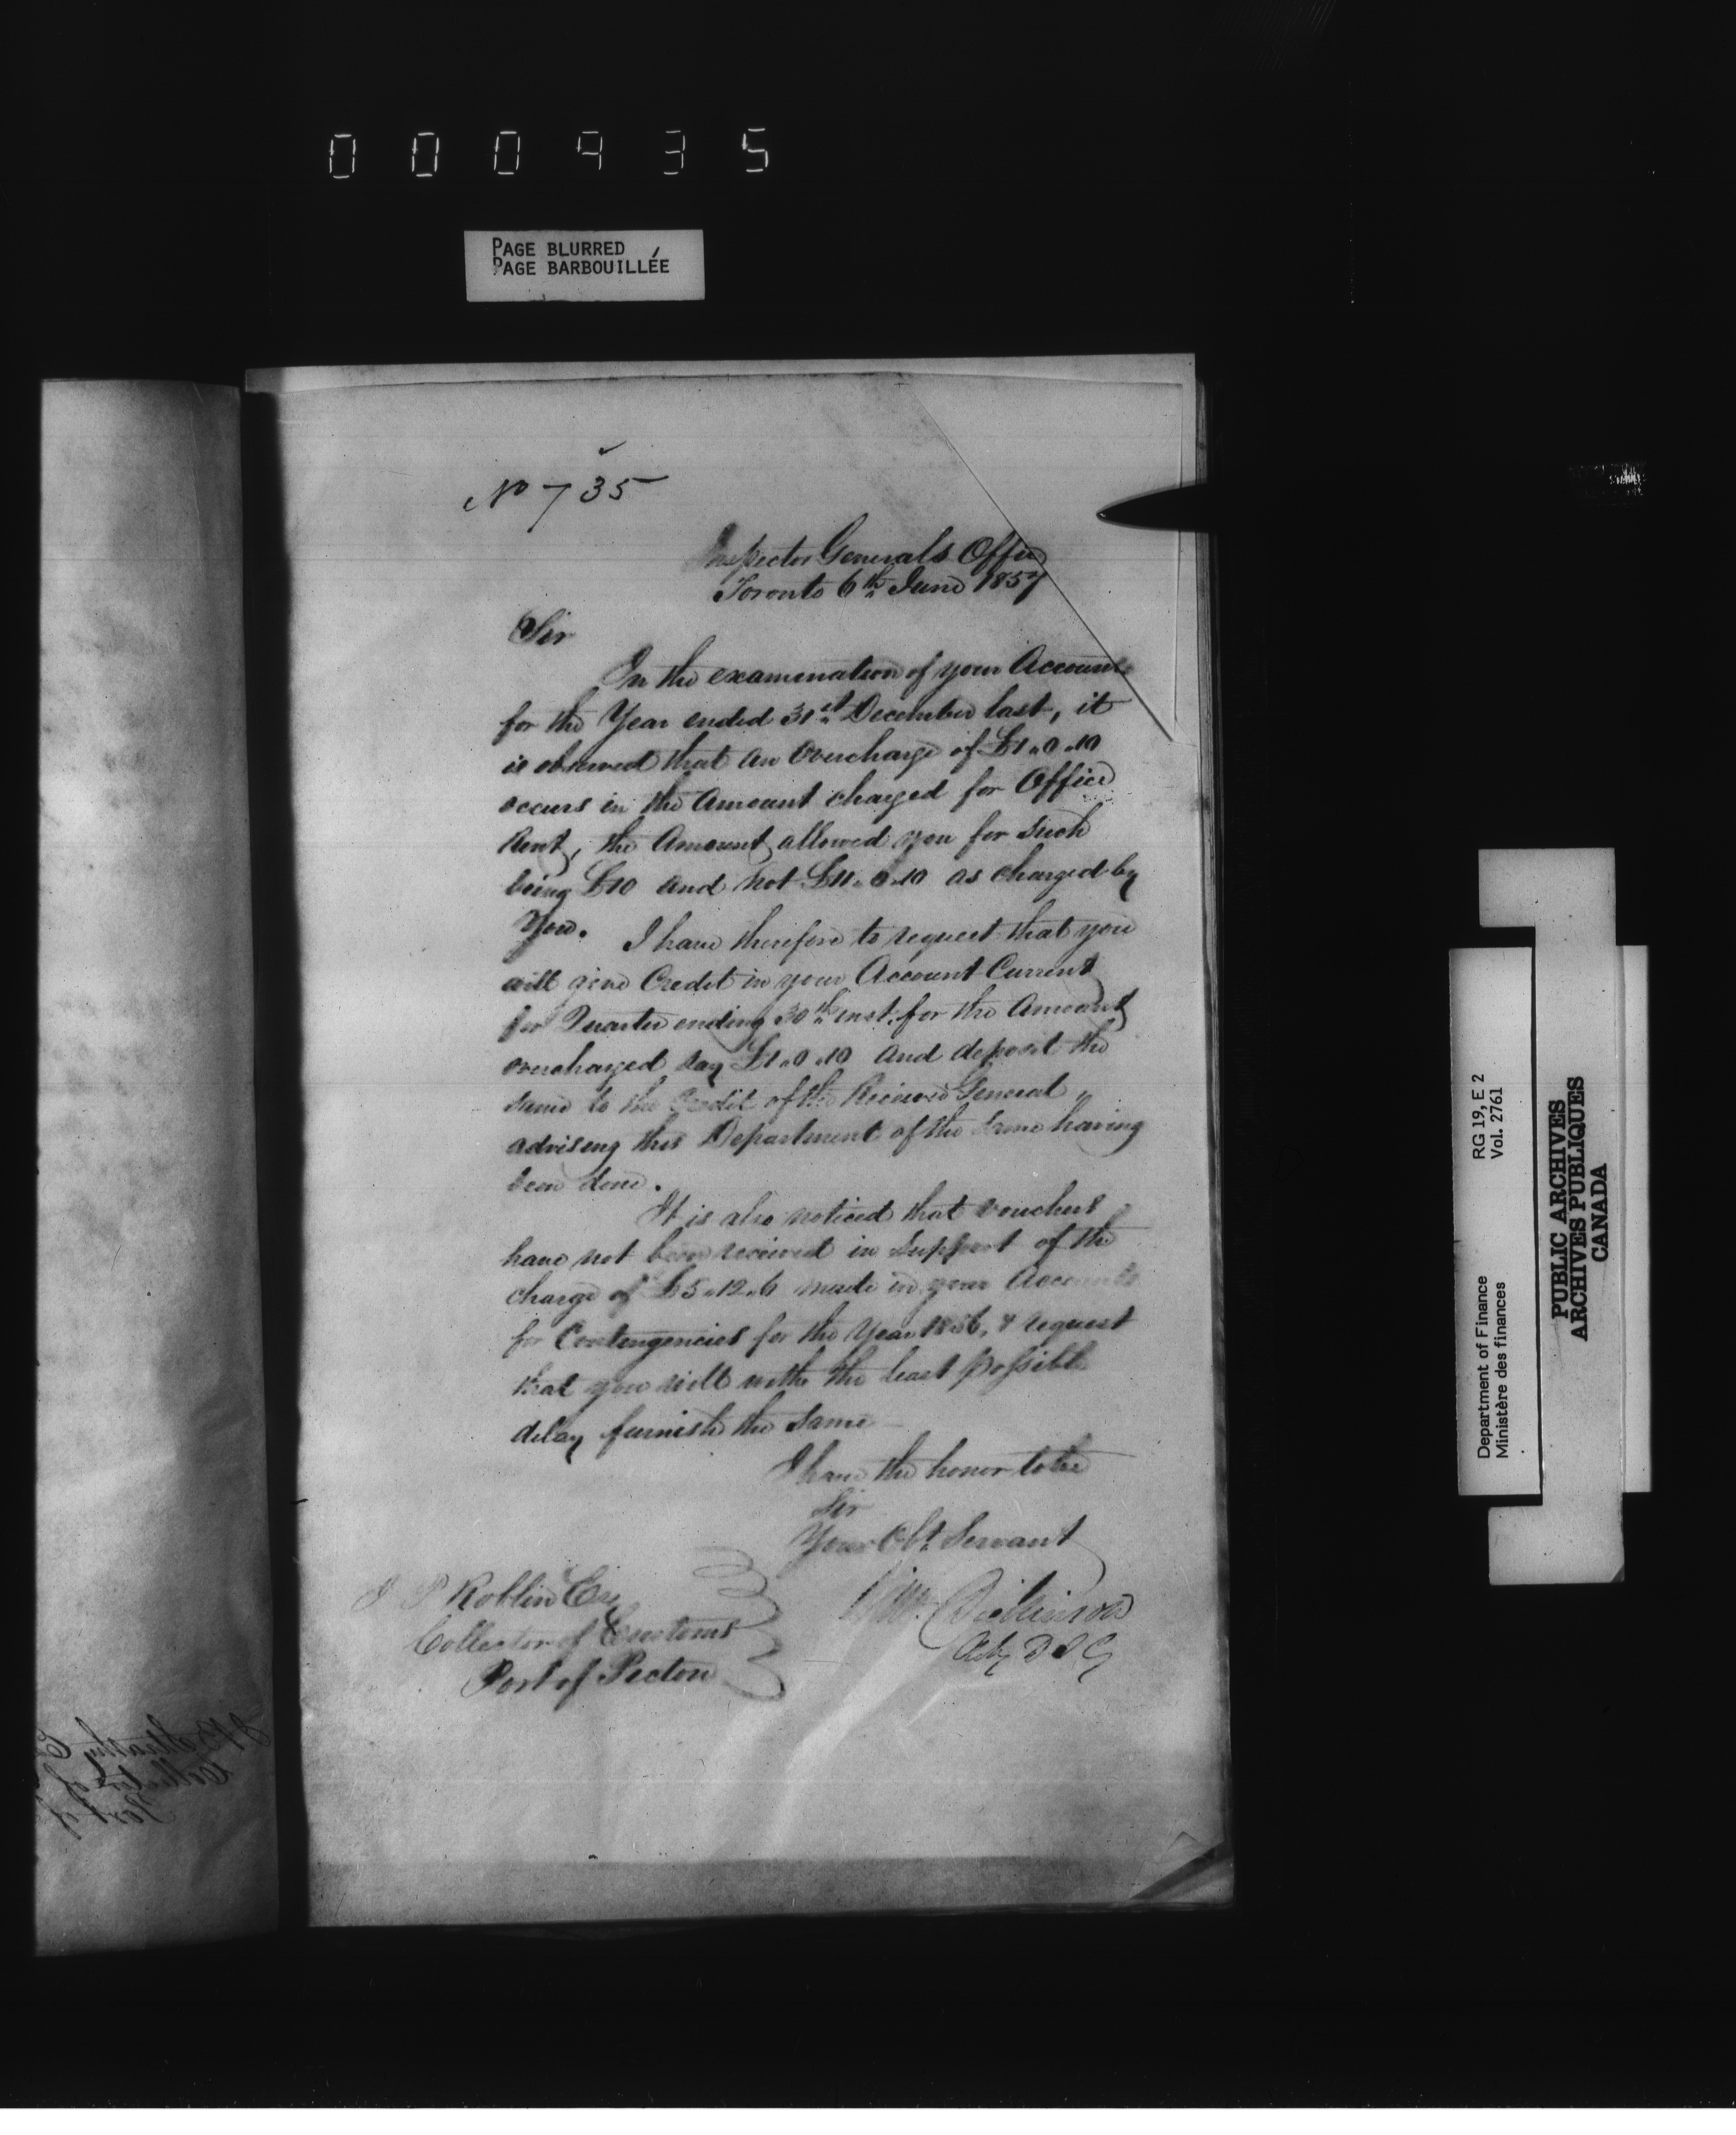 000935
PAGE BLURRED
PAGE BARBOUILLÉE
No 735
Inspector Generals Office
Toronto 6th June 1857
Sir
In the examination of your Accounts
for the Year ended 31st December last, it
is observed that an Overcharge of £1.0.10
occurs in the Amount charged for Office
Rent, the Amount allowed you for such
being £10 and not £11.0.10 as charged by
You. I have therefore to request that you
will give Credit in your Account Current
for Quarter ending 30th inst. for the Amount
overcharged say £1.0.10 and deposit the
same to the Credit of the Receiver General,
advising this Department of the same having
been done.
It is also noticed that vouchers
have not been received in Support of the
charge of £5.12.6 made in your Accounts
for Contingencies for the Year 1856, & request
that you will with the least possible
delay furnish the same
I have the honor to be
Sir
Your Obt. Servant
Wm Dickinson
Actg D I G
J P Roblin Esq
Collector of Customs
Port of Picton
Department of Finance RG 19, E 2
Ministère des finances Vol. 2761
PUBLIC ARCHIVES
ARCHIVES PUBLIQUES
CANADA